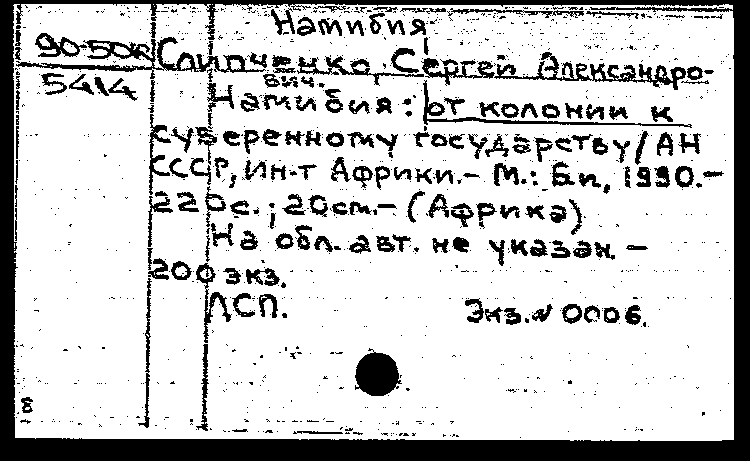 Намибия
90-50к Слипченко, Сергей Александро-
5414 вич.
Намибия: от колонии к
суверенному государству/АН
СССР, Ин-т Африки.- М.: Б.и, 1990.-
220с.; 20см.- (Африка)
На обл. авт. не указан. -
200 экз.
ДСП. Экз.№ 0006.
8